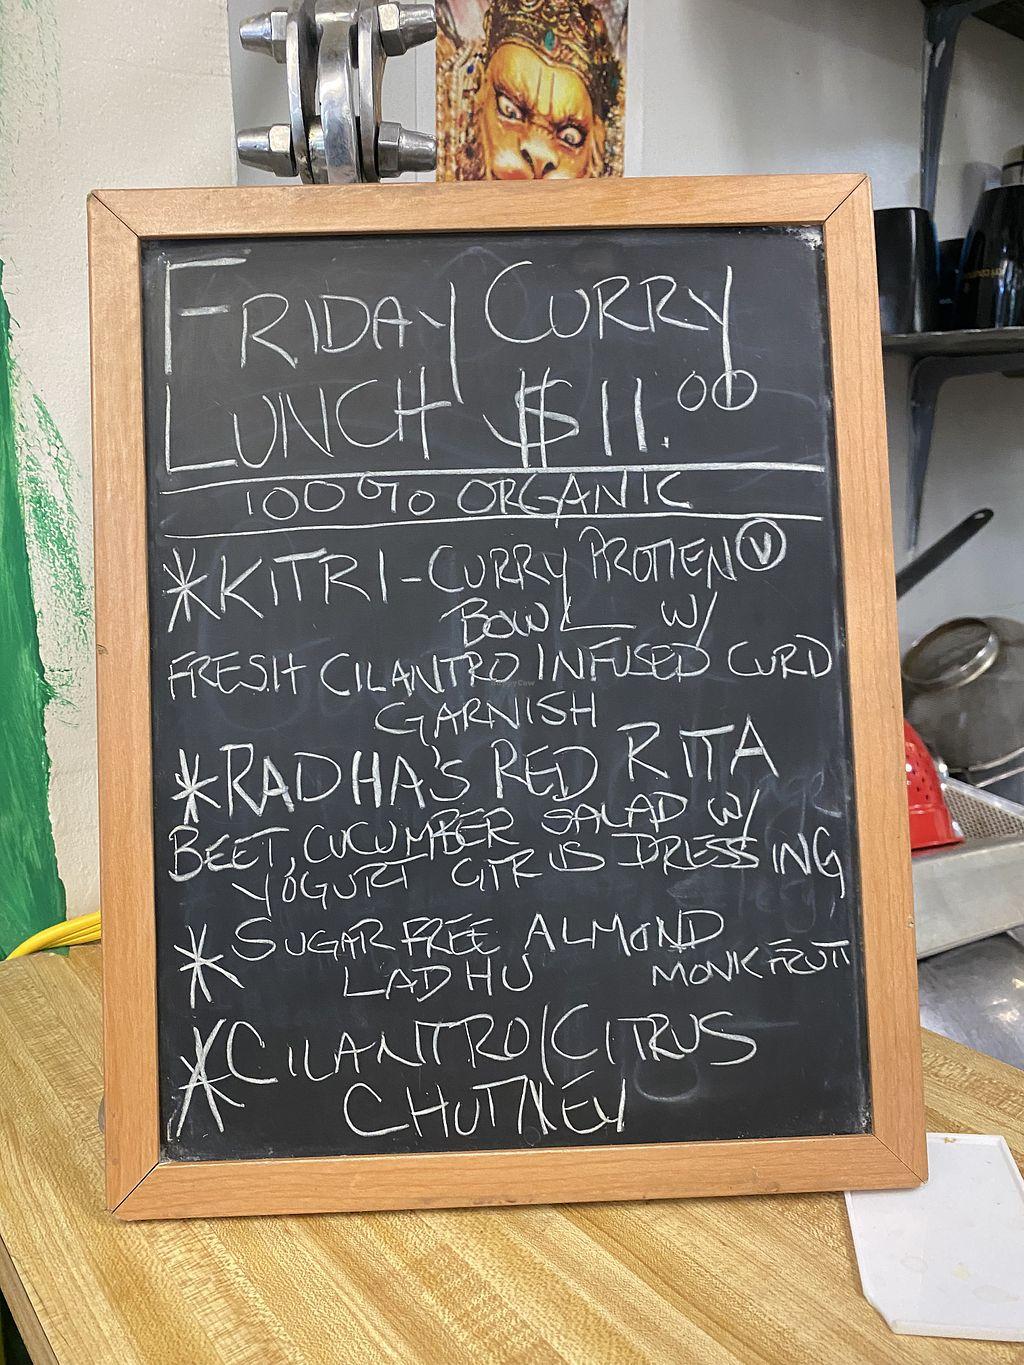 FRIDAY CURRY
LUNCH $11.00
100% ORGANIC
*KITRI-CURRY PROTIEN Ⓥ
BOWL W/
FRESH CILANTRO INFUSED CURD
GARNISH
*RADHA'S RED RITA
BEET, CUCUMBER SALAD W/
YOGURT CITRUS DRESSING
* SUGAR FREE ALMOND
LADHU MONKFRUIT
*CILANTRO/CITRUS
CHUTNEY